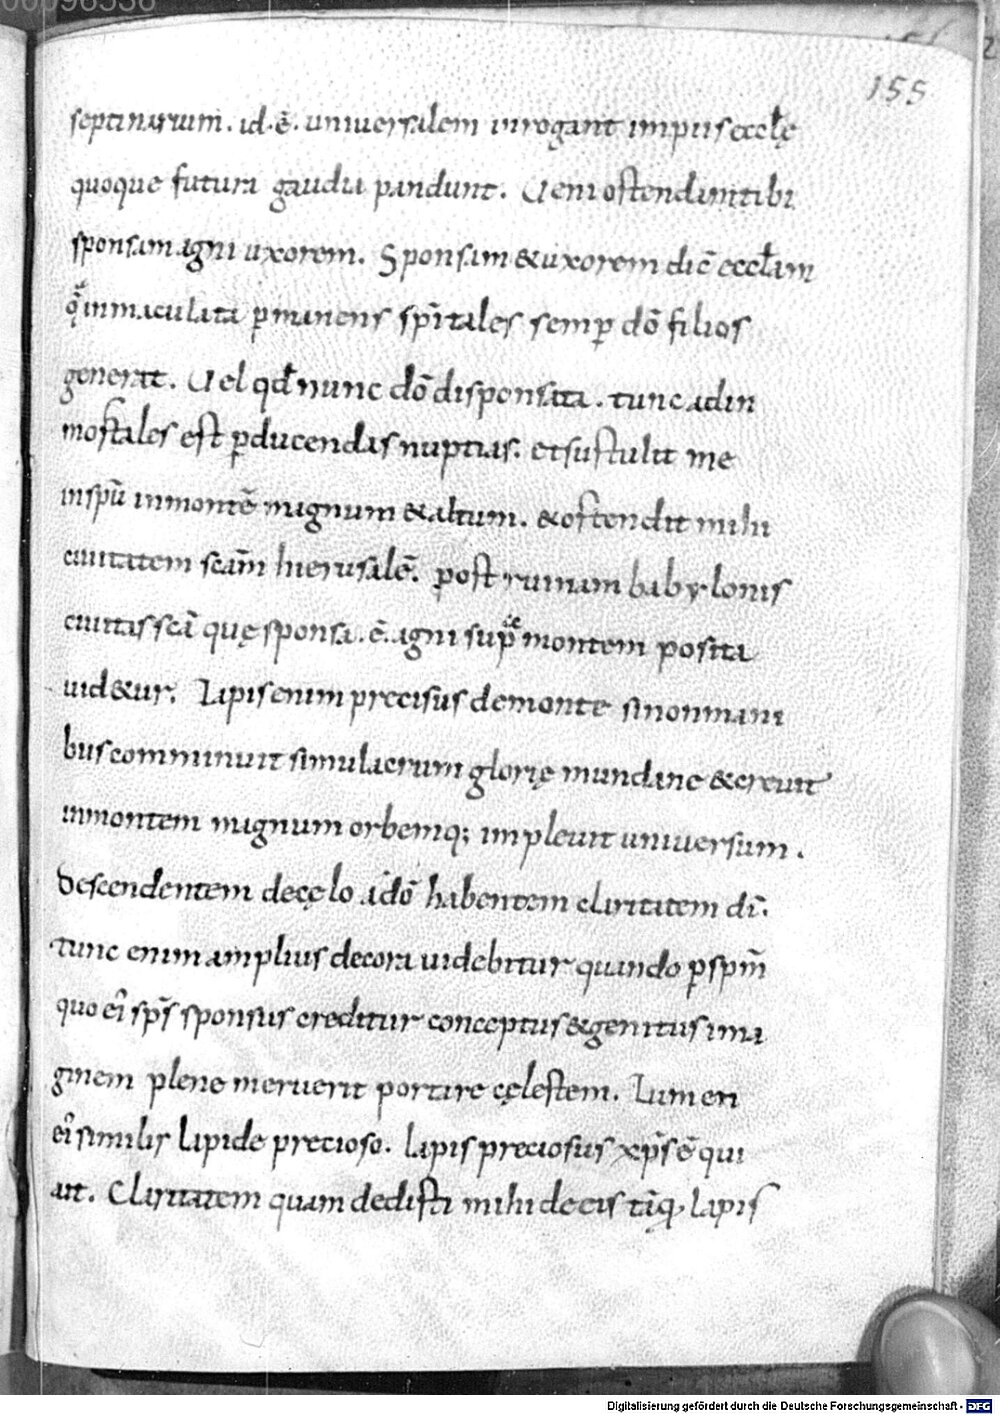 155
septinarium. id. ē. universalem inrogant impiis ecctę
quoque futura gaudia pandunt. Veni ostendam tibi
sponsam agni uxorem. Sponsam & uxorem dic̄ ecctam
q̄ inmaculata ꝑmanens spīitales semꝑ dō filios
generat. Vel qđ nunc dō disponsata. tunc ad in
mortales est ꝑducendas nuptias. et sustulit me
in spū in montē magnum & altum. & ostendit mihi
civitatem scām hierusalē. post ruinam babylonis
civitas scā quę sponsa. ē. agni supra montem posita
vid&ur. Lapis enim precisus de monte sino mani
bus comminuit simulacrum glorię mundane & crevit
in montem magnum orbemq; implevit universum.
Descendentem de cęlo a dō habentem claritatem dī.
tunc enim amplius decora videbitur quando ꝑ spm̄
quo ei sps̄ sponsus creditur conceptus & genitus ima
ginem plene meruerit portare cęlestem. Lumen
ei similis lapide precioso. lapis preciosus xps̄ ē qui
ait. Claritatem quam dedisti mihi dedi eis tāq, lapis
Digitalisierung gefördert durch die Deutsche Forschungsgemeinschaft - DFG